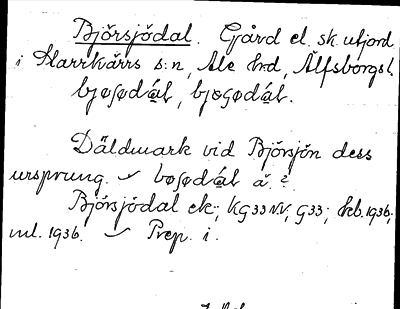 Björsjödal. Gård el. sk. utjord
i Starrkärrs s:n, Ale h:d, Älfsborgs l.
bjøſødál, bjøsødál.
Däldmark vid Björsjön dess
ursprung. ✓ bøſødál ä. ?.
Björsjödal ek; KG33NV, G33; Jkb. 1936;
ml. 1936. ✓ Prep. i.